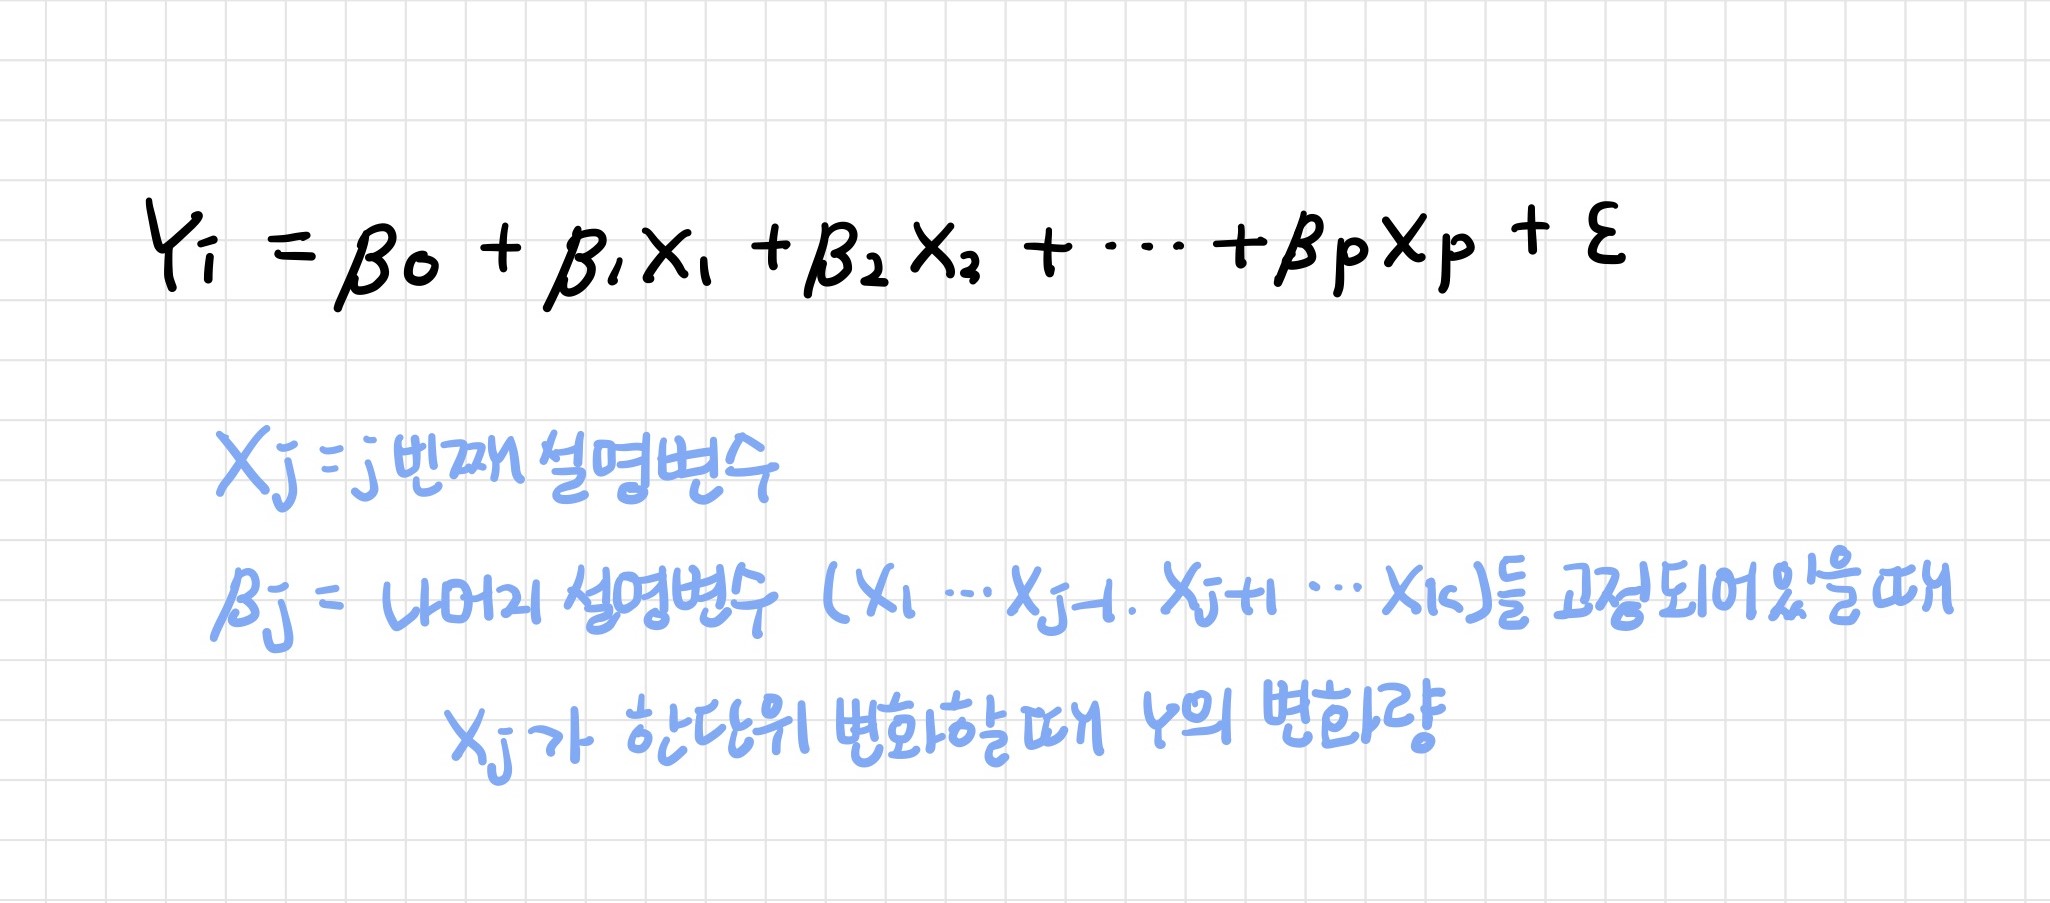 Yi = β0 + β1X1 + β2X2 + ... + βpXp + ε
Xj = j번째 설명변수
βj = 나머리 설명변수 (X1 ... Xj-1. Xj+1 ... Xk)들 고정되어있을때
Xj가 한단위 변화할때 Y의 변화량